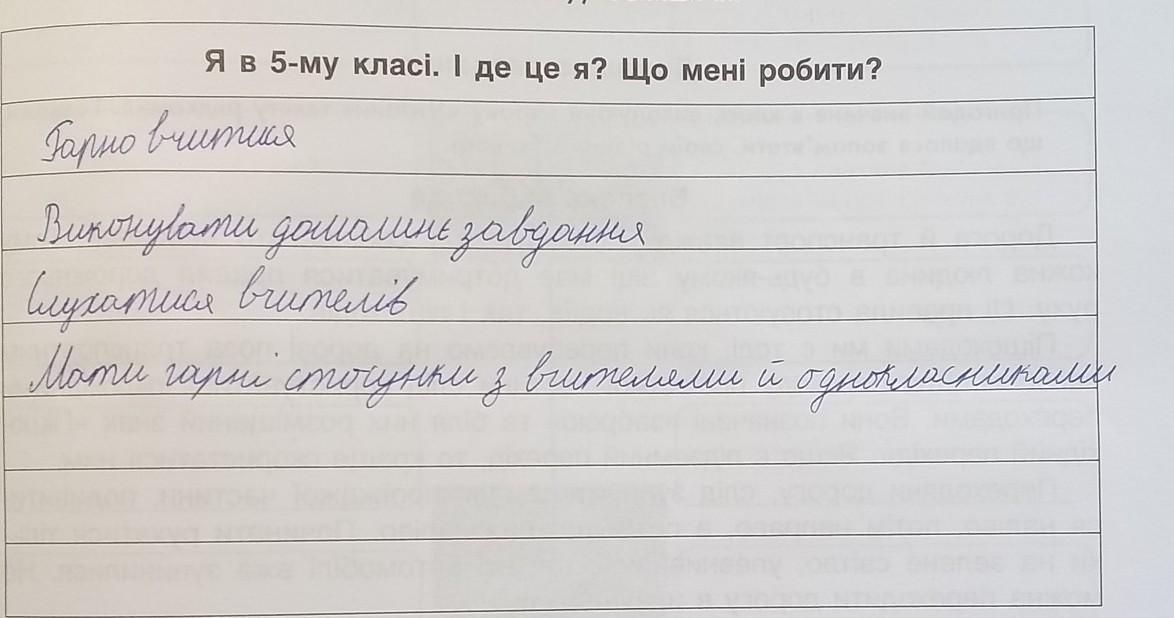 Я в 5-му класі. І де це я? Що мені робити?
Гарно вчитися
Виконувати домашнє завдання
Слухатися вчителів
Мати гарні стосунки з вчителями й однокласниками